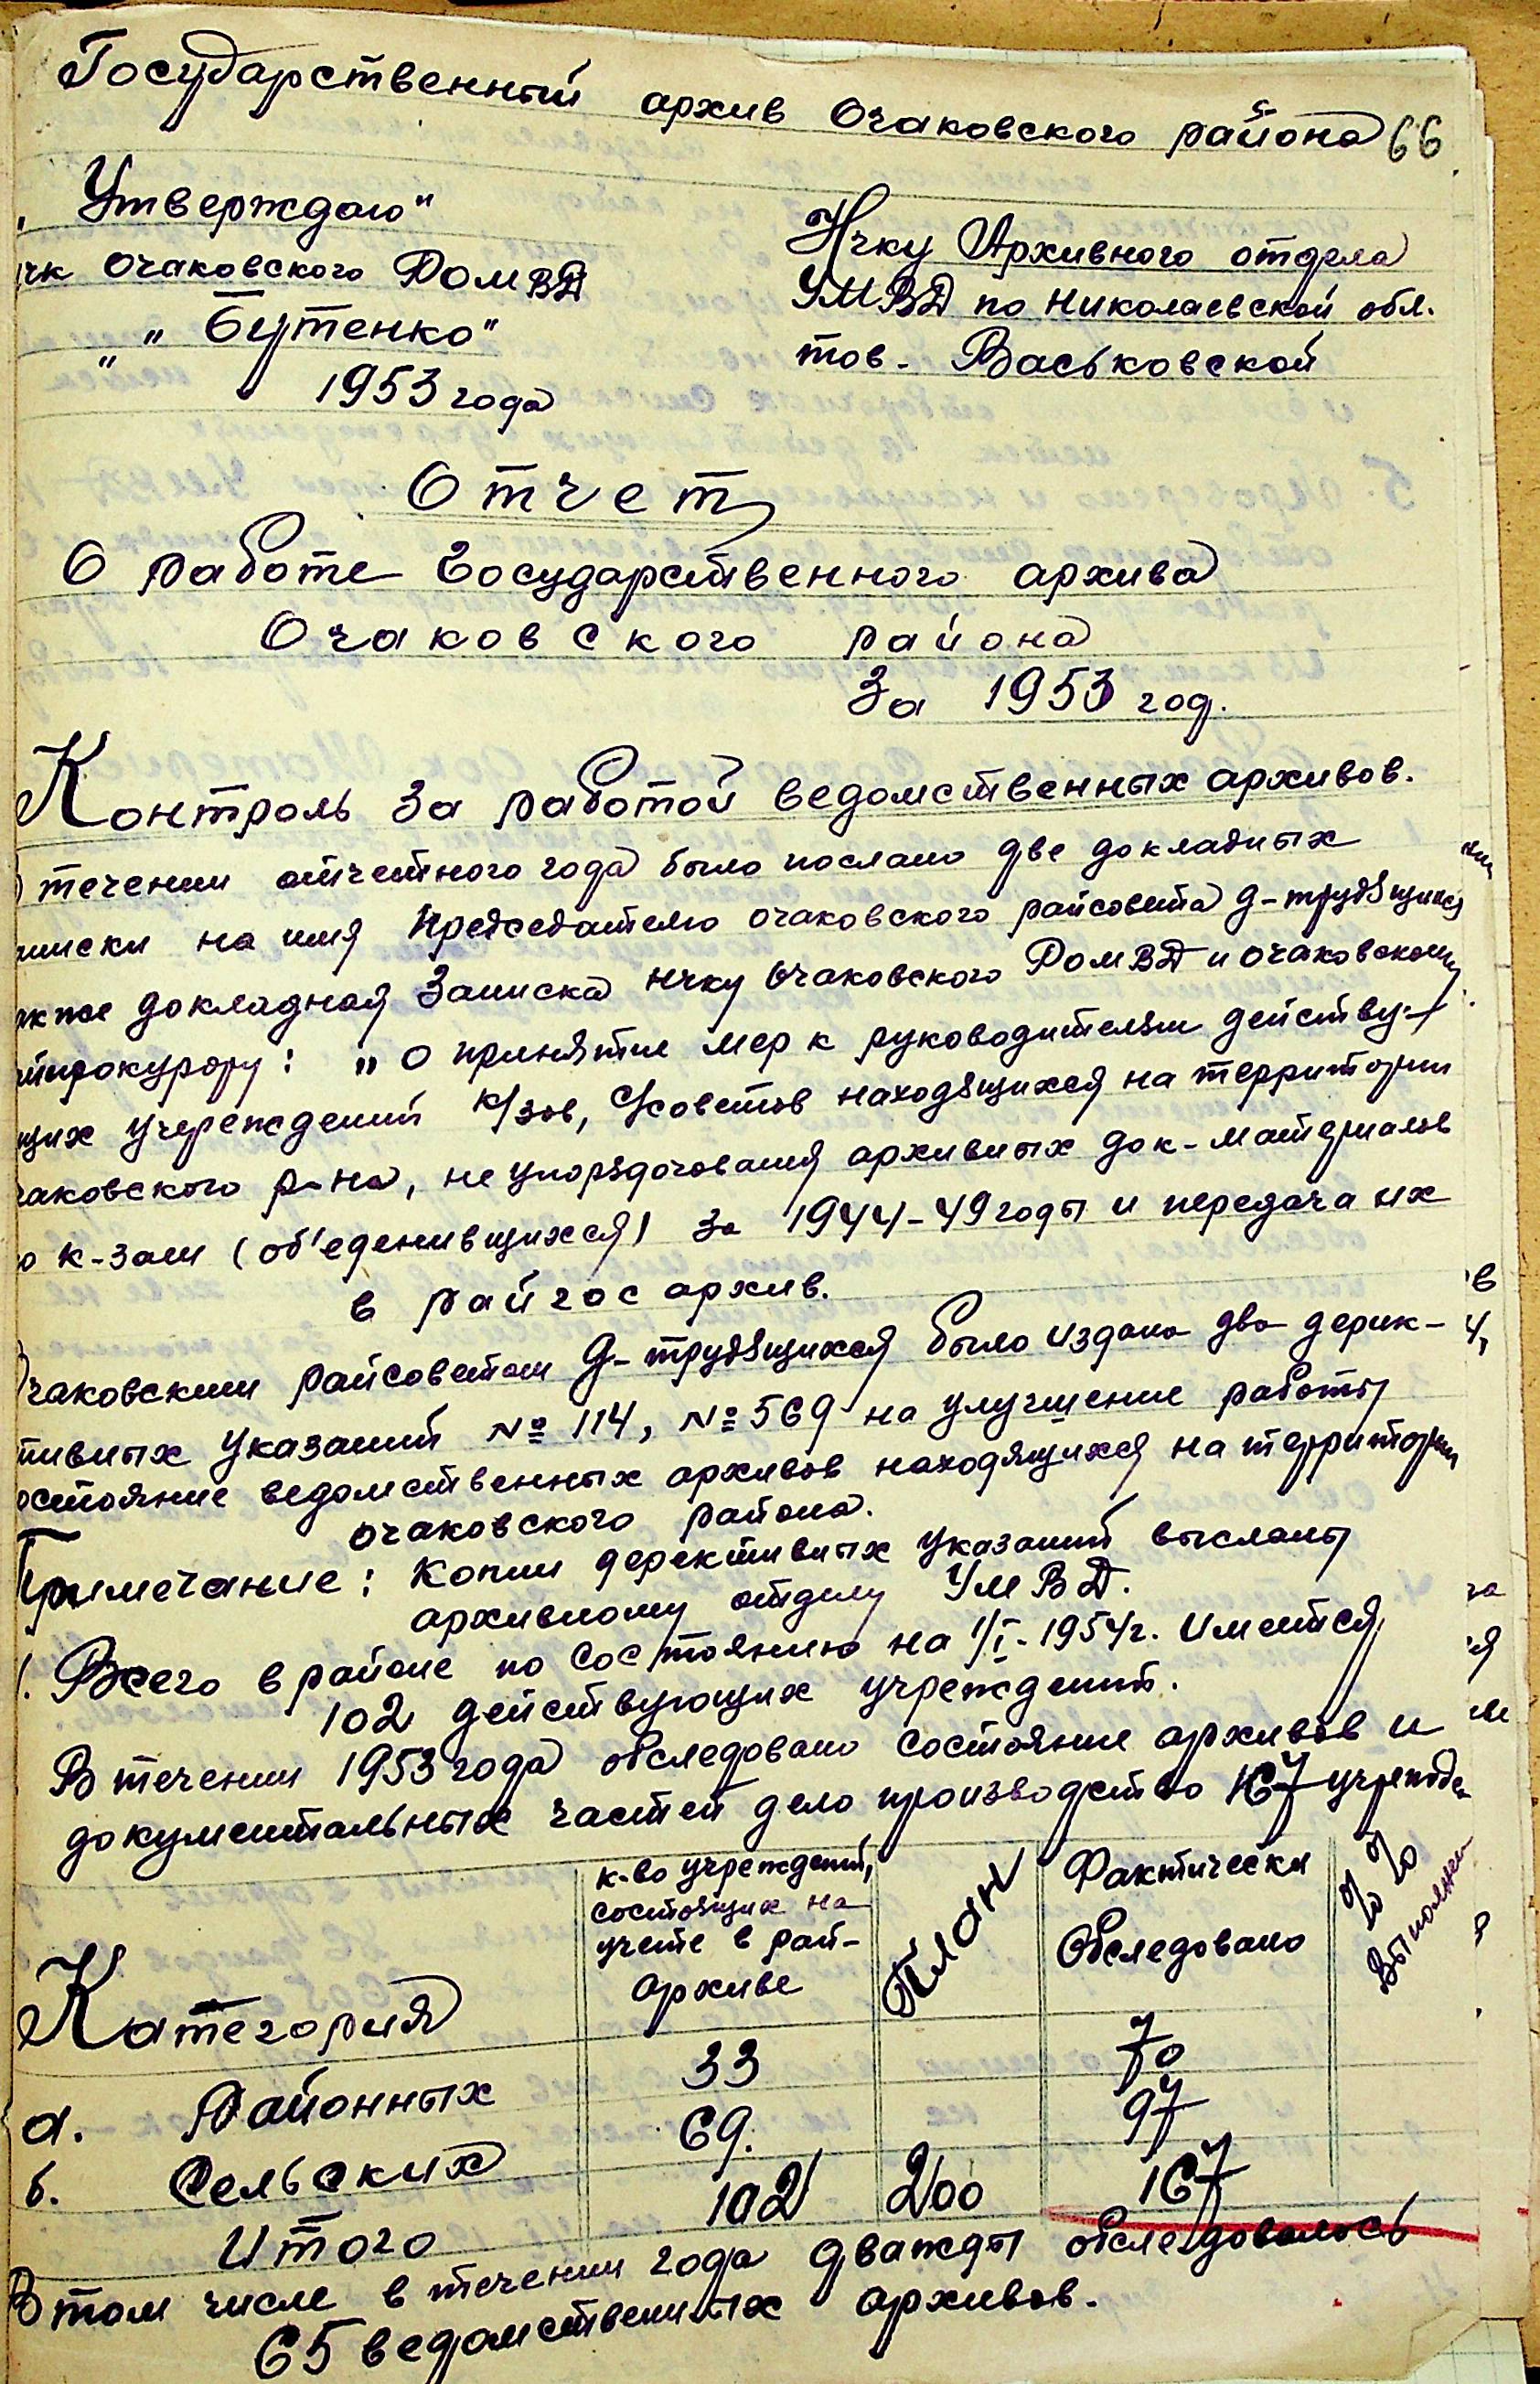 Государственный архив Очаковского района 66
„Утверждаю"
нчк Очаковского РОМВД
„ „ Бутенко"
" 1953 года
Нчку Архивного отдела
УМВД по Николаевской обл.
тов. Васьковской
Отчет
О работе Государственного архива
Очаковского района
За 1953 год.
Контроль за работой ведомственных архивов.
течении отчетного года было послано две докладных
записки на имя Председателю Очаковского райсовета д-трудящихся
также докладная записка нчку Очаковского РОМВД и Очаковскому
райпрокурору: „О принятие мер к руководителям действу-
щих учреждений к/зов, с/советов находящихся на территории
чаковского р-на, не упорядочования архивных док-материалов
по к-зам (об'еденившихся) за 1944-49 годы и передача их
в райгосархив.
Очаковским райсоветом д-трудящихся было издано два дерик-
тивных указаний № 114, № 569 на улучшение работы
состояние ведомственных архивов находящихся на территории
Очаковского района.
Примечание: Копии дерективных указаний высланы
архивному отделу УМВД.
1. Всего в районе по состоянию на 1/I-1954г. имеется
102 действующих учреждений.
В течении 1953 года обследовано состояние архивов и
документальных частей дело производство 167 учрежде
Категория
к-во учреждений,
состоящих на
учете в рай-
архиве
План
Фактически
Обследовано
%%
Выполнен
а. Районных 33 70
б. Сельских 69. 97
Итого 102 200 167
В том числе в течении года дважды обследовалось
65 ведомственных архивов.